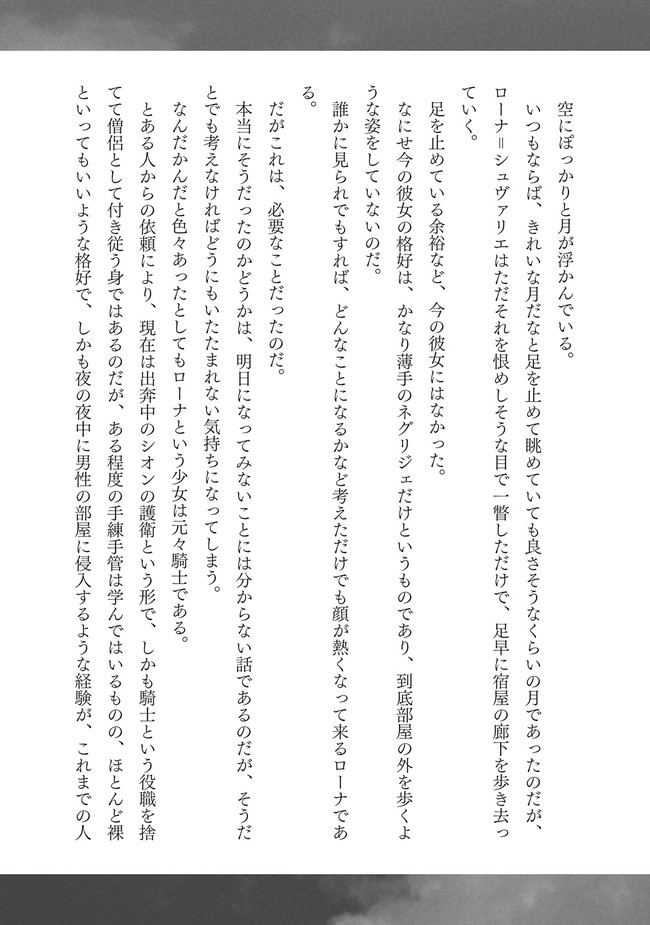 空にぽっかりと月が浮かんでいる。
いつもならば、きれいな月だなと足を止めて眺めていても良さそうなくらいの月であったのだが、
ローナ＝シュヴァリエはただそれを恨めしそうな目で一瞥しただけで、足早に宿屋の廊下を歩き去っ
ていく。
足を止めている余裕など、今の彼女にはなかった。
なにせ今の彼女の格好は、かなり薄手のネグリジェだけというものであり、到底部屋の外を歩くよ
うな姿をしていないのだ。
誰かに見られでもすれば、どんなことになるかなど考えただけでも顔が熱くなって来るローナであ
る。
だがこれは、必要なことだったのだ。
本当にそうだったのかどうかは、明日になってみないことには分からない話であるのだが、そうだ
とでも考えなければどうにもいたたまれない気持ちになってしまう。
なんだかんだと色々あったとしてもローナという少女は元々騎士である。
とある人からの依頼により、現在は出奔中のシオンの護衛という形で、しかも騎士という役職を捨
てて僧侶として付き従う身ではあるのだが、ある程度の手練手管は学んではいるものの、ほとんど裸
といってもいいような格好で、しかも夜の夜中に男性の部屋に侵入するような経験が、これまでの人